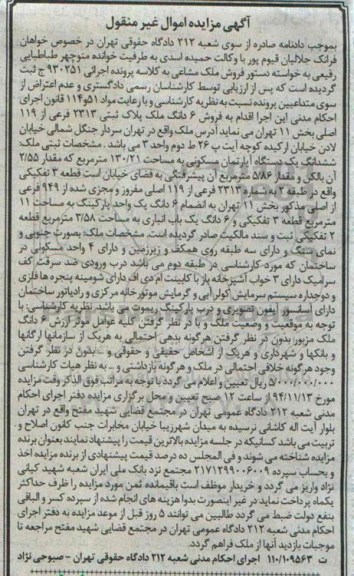 آگهی مزایده اموال غیر منقول
بموجب دادنامه صادره از سوی شعبه ۲۱۲ دادگاه حقوقی تهران در خصوص خواهان
فرانک جلالیان قیوم پور با وکالت حمیده اسدی به طرفیت خوانده منوچهر طباطبایی
رفیعی به خواسته دستور فروش ملک مشاعی به کلاسه پرونده اجرائی ۹۳۰۲۵۱ ج ثبت
گردیده است که پس از ارزیابی توسط کارشناسان رسمی دادگستری و عدم اعتراض از
سوی متداعیین پرونده نسبت به نظریه کارشناسی و با رعایت مواد ۵۱ و ۱۱۴ قانون اجرای
احکام مدنی این اجرا اقدام به فروش ۶ دانگ ملک پلاک ثبتی ۲۳۱۳ فرعی از ۱۱۹
اصلی بخش ۱۱ تهران می نماید آدرس ملک واقع در تهران سردار جنگل شمالی خیابان
لادن خیابان ارکیده کوچه آیت پ ۲۶ ط دوم واحد ۳ می باشد. مشخصات ثبتی ملک:
ششدانگ یک دستگاه آپارتمان مسکونی به مساحت ۱۳۰/۲۱ مترمربع که مقدار ۲/۵۵
آن بالکن و مقدار ۵/۸۶ مترمربع آن پیشرفتگی به فضای خیابان است قطعه ۳ تفکیکی
واقع در طبقه ۲ به شماره ۲۳۱۳ فرعی از ۱۱۹ اصلی مفروز و مجزی شده از ۹۴۹ فرعی
از اصلی مذکور بخش ۱۱ تهران به انضمام ۶ دانگ یک واحد پارکینگ به مساحت ۱۱
مترمربع قطعه ۳ تفکیکی و ۶ دانگ یک باب انباری به مساحت ۳/۵۸ مترمربع قطعه
۳ تفکیکی ثبت و سند مالکیت صادر گردیده است. مشخصات ملک: بصورت جنوبی و
نمای سنگ و دارای سه طبقه روی همکف و زیرزمین و دارای ۴ واحد مسکونی در
ساختمان که مورد کارشناسی در طبقه دوم می باشد درب ورودی ضد سرقت کف
سرامیک دارای ۳ خواب آشپزخانه باز با کابینت ام دی اف دارای شومینه پنجره ها فلزی
و دوجداره سیستم سرمایش کولر آبی و گرمایش موتورخانه مرکزی و رادیاتور ساختمان
دارای آسانسور آیفون تصویری و درب پارکینگ ریموت می باشد. نظریه کارشناسی: با
توجه به موقعیت و وضعیت ملک و با در نظر گرفتن کلیه عوامل موثر ارزش ۶ دانگ
ملک مزبور بدون در نظر گرفتن هرگونه بدهی احتمالی به هریک از سازمانها ارگانها
و بانکها و شهرداری و هریک از اشخاص حقیقی و حقوقی و ... بدون در نظر گرفتن
وجود هرگونه خلافی احتمالی در ملک و هرگونه بازداشتی و ... به نظر هیات کارشناسی
ریال تعیین و اعلام می گردد با توجه به مراتب فوق الذکر وقت مزایده
مورخ ۹۴/۱۱/۱۳ از ساعت ۱۲ صبح تعیین و محل برگزاری مزایده دفتر اجرای احکام
مدنی شعبه ۲۱۲ دادگاه عمومی تهران در مجتمع قضایی شهید مفتح واقع در تهران
بلوار آیت اله کاشانی نرسیده به میدان شهرزیبا خیابان مخابرات جنب کانون اصلاح و
تربیت می باشد کسانیکه در جلسه مزایده بالاترین قیمت را پیشنهاد نمایند بعنوان برنده
مزایده شناخته می شوند و فی المجلس ده درصد قیمت پیشنهادی از برنده مزایده اخذ
و بحساب سپرده ۲۱۷۱۲۹۹۰۰۶۰۰۹ مجتمع نزد بانک ملی ایران شعبه شهید کیانی
نژاد واریز می گردد و خریدار موظف است باقیمانده ثمن مورد مزایده را ظرف حداکثر
یکماه پرداخت نماید در غیر اینصورت بدوا هزینه های انجام شده از سپرده کسر و الباقی
بنفع دولت ضبط می گردد طالبین می توانند ۵ روز قبل از موعد مزایده به دفتر اجرای
احکام مدنی شعبه ۲۱۲ دادگاه عمومی تهران در مجتمع قضایی شهید مفتح مراجعه تا
موجبات بازدید آنها از ملک فراهم گردد.
ت ۱۱۰/۱۰۹۵۶۳ اجرای احکام مدنی شعبه ۲۱۲ دادگاه حقوقی تهران - صبوحی نژاد